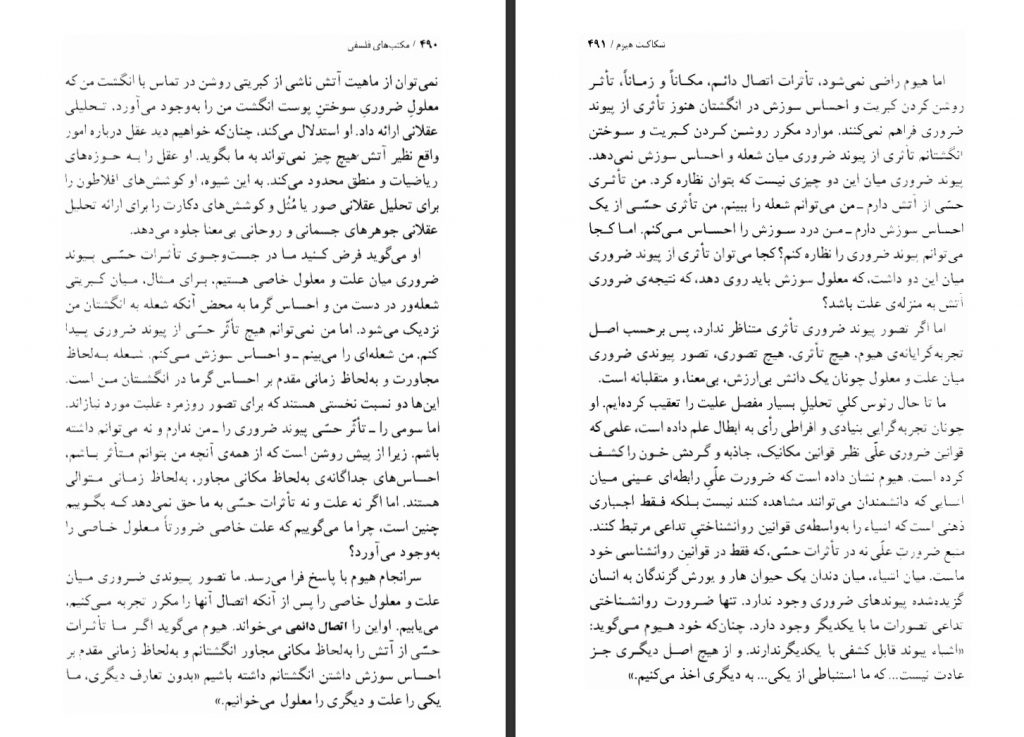 ۴۹۰ / مکتب‌های فلسفی
نمی‌توان از ماهیت آتش ناشی از کبریتی روشن در تماس با انگشت من که
معلولِ ضروریِ سوختنِ پوست انگشت من را به‌وجود می‌آورد، تـحلیلی
عقلانی ارائه داد. او استدلال می‌کند، چنان‌که خواهیم دید عقل درباره امور
واقع نظیر آتش هیچ چیز نمی‌تواند به ما بگوید. او عقل را بـه حـوزه‌های
ریاضیات و منطق محدود می‌کند. به این شیوه، او کوشش‌های افلاطون را
برای تحلیل عقلانی صور یا مُثُل و کوشش‌های دکارت را برای ارائه تحلیل
عقلانی جوهرهای جسمانی و روحانی بی‌معنا جلوه می‌دهد.
او می‌گوید فرض کـنید مـا در جست‌وجوی تأثـرات حسّـی پـیوند
ضروری میان علت و معلول خاصی هستیم، بـرای مـثال، مـیان کـبریتی
شعله‌ور در دست من و احساس گرما به محض آنکه شعله به انگشتان من
نزدیک می‌شود. اما من نمی‌توانم هیچ تأثّر حسّـی از پـیوند ضـروری پـیدا
کنم. من شعله‌ای را می‌بینم ـ و احساس سوزش مـی‌کنم. شـعله بـه‌لحاظ
مجاورت و به‌لحاظ زمانی مقدم بر احساس گرما در انگشتان مـن است.
این‌ها دو نسبت نخستی هستند که برای تصور روزمره علیت مورد نیازاند.
اما سومی را ـ تأثّر حسّی پیوند ضروری را ـ من ندارم و نه می‌توانم داشته
باشم. زیرا از پیش روشن است که از همه‌ی آنچه من بتوانم متأثر بـاشم،
احساس‌های جداگانه‌ی به‌لحاظ مکانی مجاور، به‌لحاظ زمـانی مـتوالی
هستند. اما اگر نه علت و نه تأثرات حسّـی به ما حق نمی‌دهد کـه بگـوییم
چنین است، چرا ما می‌گوییم که علت خاصی ضرورتاً مـعلول خـاصی را
به‌وجود می‌آورد؟
سرانجام هیوم با پاسخ فرا می‌رسد. ما تصور پـیوندی ضـروری مـیان
علت و معلول خاصی را پس از آنکه اتصال آنها را مکرر تجربه مـی‌کنیم،
می‌یابیم. اواین را اتصال دائمی می‌خواند. هیوم می‌گوید اگـر مـا تـأثرات
حسّی از آتش را به‌لحاظ مکانی مجاور انگشتانم و به‌لحاظ زمانی مقدم بر
احساس سوزش داشتن انگشتانم داشته باشیم «بدون تعارف دیگری، مـا
یکی را علت و دیگری را معلول می‌خوانیم.»
شکاکیت هیوم / ۴۹۱
اما هیوم راضی نمی‌شود، تأثرات اتصال دائـم، مکـاناً و زمـاناً، تأثـر
روشن کردن کبریت و احساس سوزش در انگشتان هنوز تأثری از پیوند
ضروری فراهم نمی‌کنند. موارد مکرر روشـن کـردن کـبریت و سـوختن
انگشتانم تأثری از پیوند ضروری میان شعله و احساس سوزش نمی‌دهد.
پیوند ضروری میان این دو چیزی نیست که بتوان نظاره کرد. من تـأثـری
حسّی از آتش دارم ـ من می‌توانم شعله را ببینم. من تأثری حسّـی از یـک
احساس سوزش دارم ـ مـن درد سـوزش را احسـاس مـی‌کنم. امـا کـجا
می‌توانم پیوند ضروری را نظاره کنم؟ کجا می‌توان تأثری از پیوند ضروری
میان این دو داشت، که معلول سوزش باید روی دهد، که نتیجه‌ی ضروری
آتش به منزله‌ی علت باشد؟
اما اگر تصور پیوند ضروری تأثری متناظر ندارد، پس برحسب اصـل
تجربه‌گرایانه‌ی هیوم، هیچ تأثری، هیچ تصوری، تصور پیوندی ضروری
میان علت و معلول چونان یک دانش بی‌ارزش، بی‌معنا، و متقلبانه است.
ما تا حال رئوس کلیِ تحلیلِ بسیار مفصل علیت را تعقیب کرده‌ایم. او
چونان تجربه‌گرایی بنیادی و افراطی رأی به ابطال علم داده است، علمی‌که
قوانین ضروری علّی نظر قوانین مکانیک، جاذبه و گـردش خـون را کشـف
کرده است. هیوم نشان داده است که ضرورت علّیِ رابطه‌ای عـینی مـیان
اشیایی که دانشمندان می‌توانند مشاهده کنند نیست بـلکه فـقط اجـباری
ذهنی است که اشیاء را به‌واسطه‌ی قوانین روانشناختیِ تداعی مرتبط کنند.
منبع ضرورت علّی نه در تأثرات حسّی، که فقط در قوانین روانشناسی خود
ماست. میان اشیاء، میان دندان یک حیوان هار و یورش گزندگان به انسان
گزیده‌شده پیوندهای ضروری وجود ندارد. تنها ضرورت روانشـناختی
تداعی تصورات ما با یکدیگر وجود دارد. چنان‌که خود هـیوم مـی‌گوید:
«اشیاء پیوند قابل کشفی با یکدیگرندارند. و از هیچ اصـل دیگـری جـز
عادت نیست... که ما استنباطی از یکی... به دیگری اخذ می‌کنیم.»